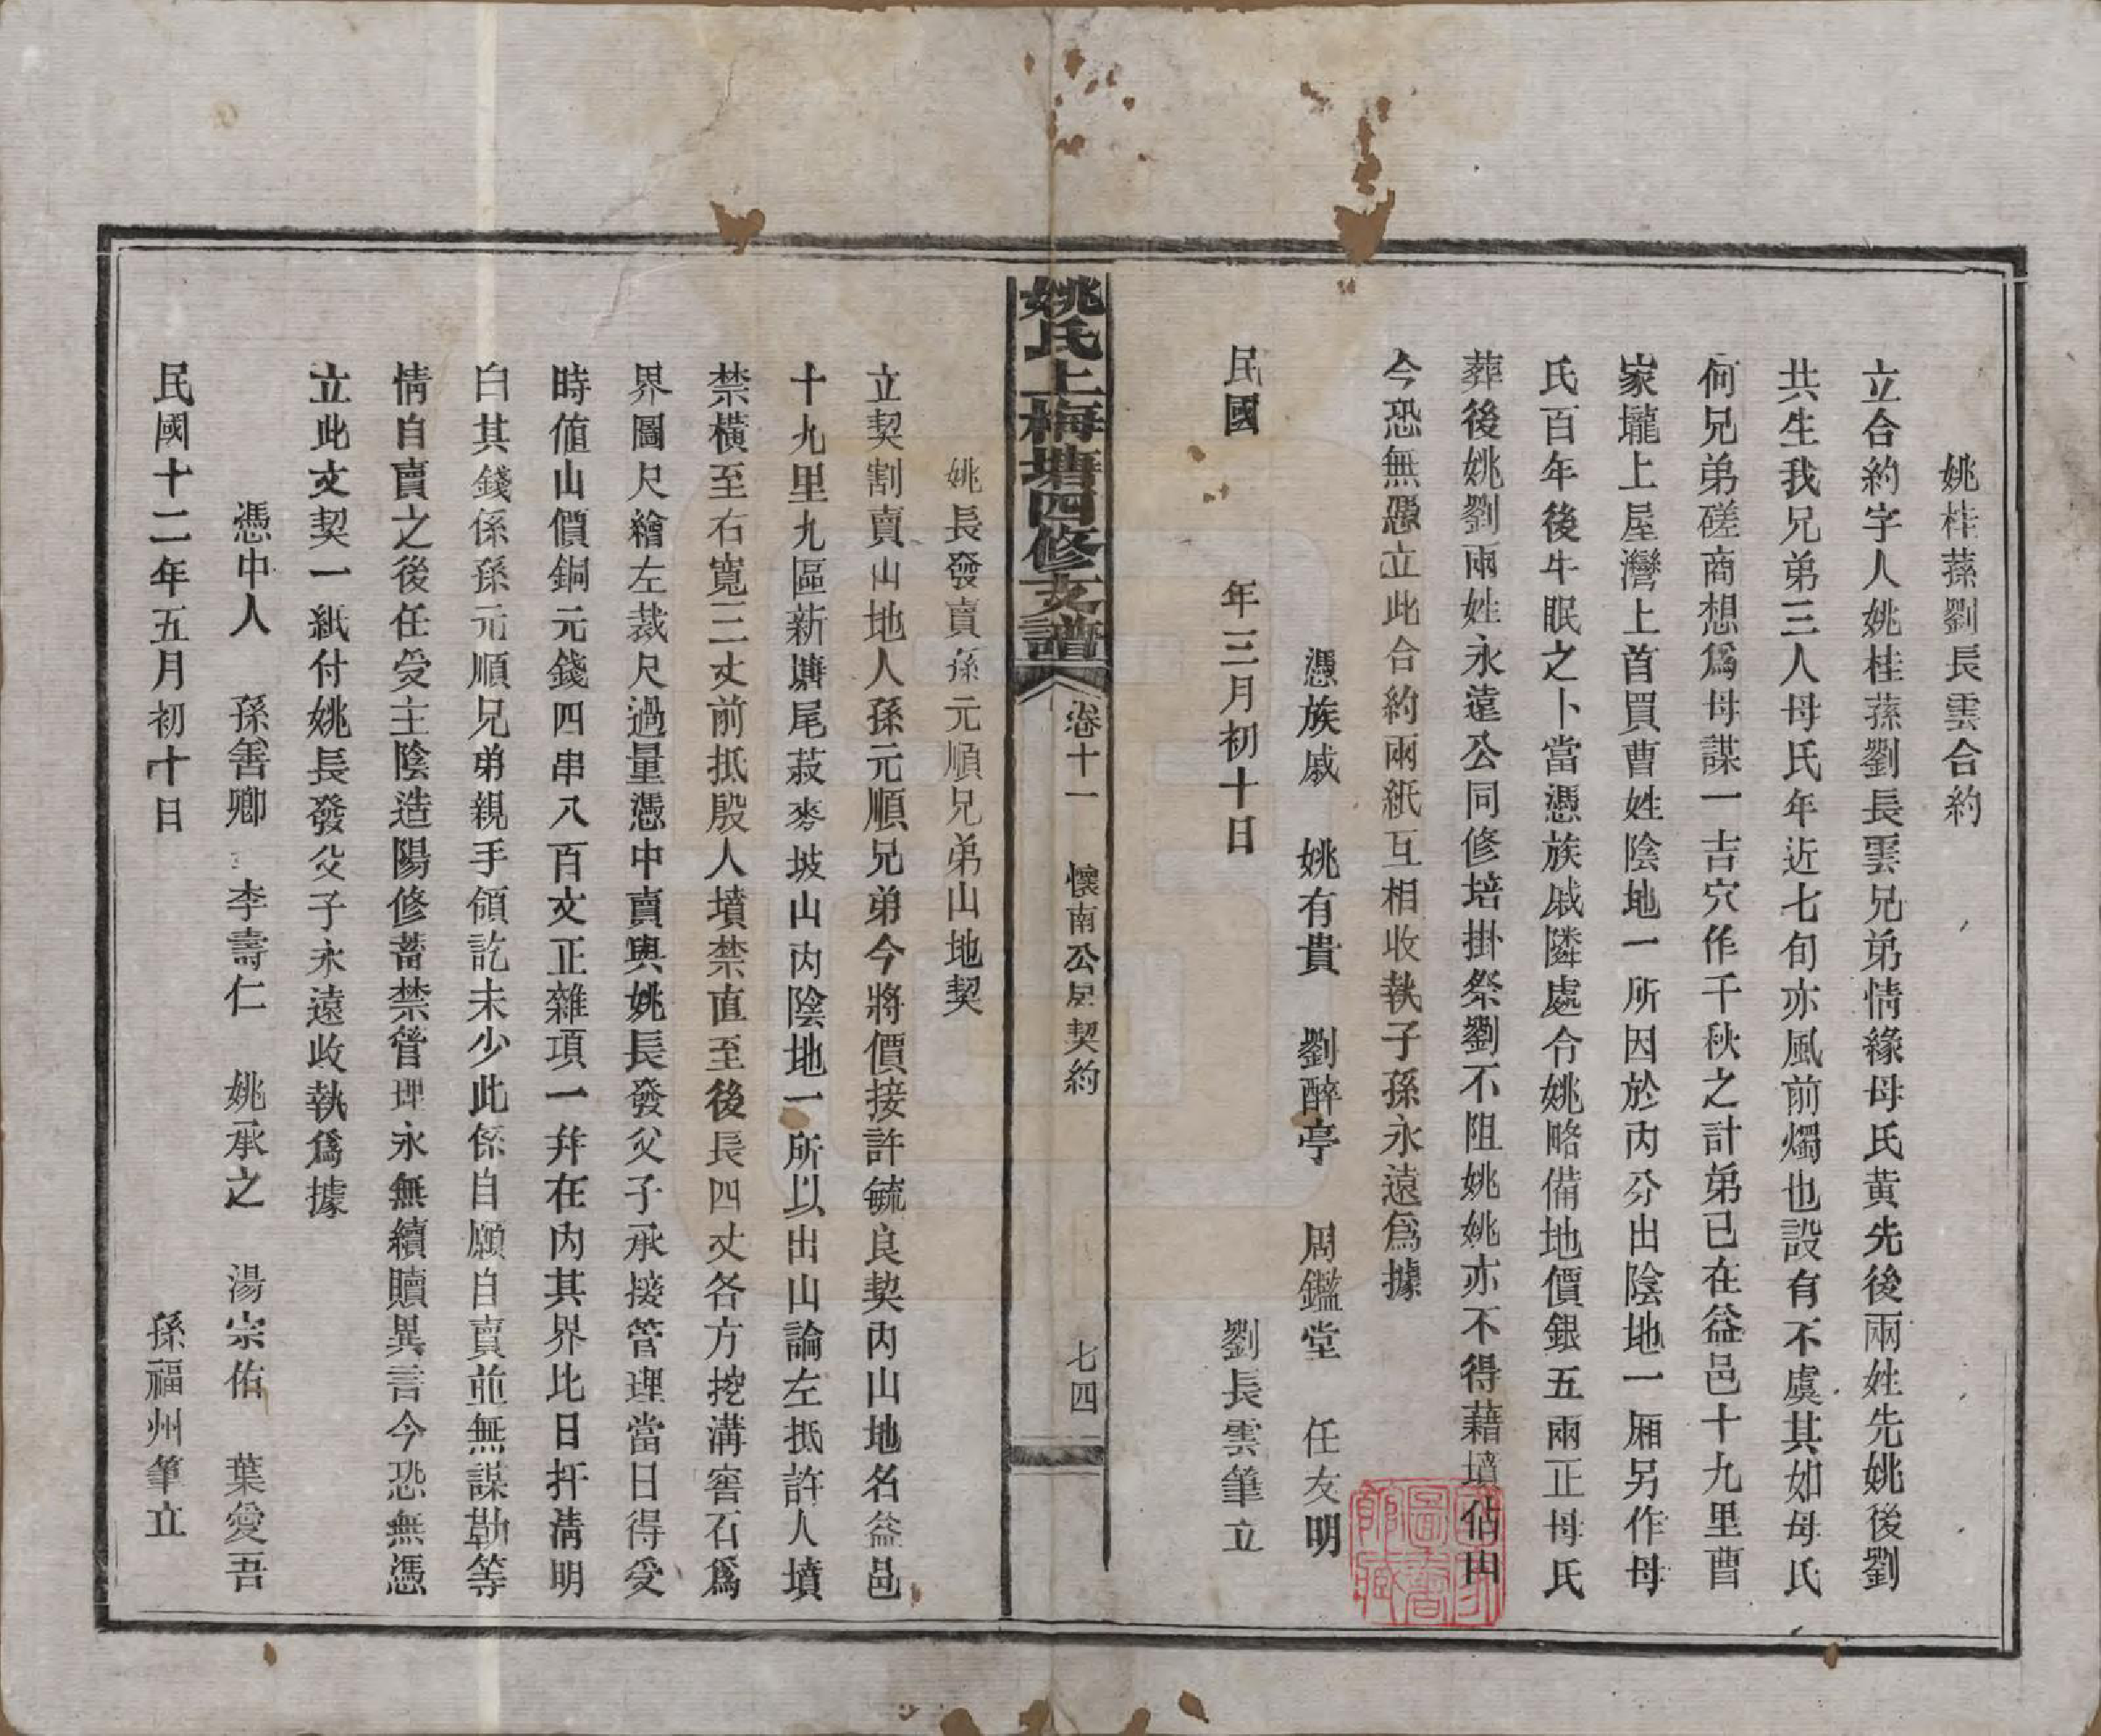 姚桂蓀劉長雲合約
立合約字人姚桂蓀劉長雲兄弟情緣母氏黄先後兩姓先姚後劉
共生我兄弟三人母氏年近七旬亦風前燭也設有不虞其如母氏
何兄弟磋商想爲母謀一吉穴作千秋之計弟已在益邑十九里曹
家壠上屋灣上首買曹姓陰地一所因於内分出陰地一厢另作母
氏百年後牛眠之卜當憑族戚隣處令姚略備地價銀五兩正母氏
葬後姚劉兩姓永遠公同修培掛祭劉不阻姚姚亦不得藉墳佔山
今恐無憑立此合約兩紙互相收執子孫永遠爲據
憑族戚 姚有貴 劉醉亭 周鑑堂 任友明
民國 年三月初十日 劉長雲筆立
姚氏上梅塘四修支譜 卷十一 懷南公房契約 七四
姚長發賣孫元順兄弟山地契
立契割賣山地人孫元順兄弟今將價接許毓良契内山地名益邑
十九里九區新塘尾菽麥坡山内陰地一所以出山論左抵許人墳
禁橫至右寬三丈前抵殷人墳禁直至後長四丈各方挖溝窖石爲
界圖尺繪左裁尺過量憑中賣與姚長發父子承接管理當日得受
時値山價銅元錢四串八百文正雜項一并在内其界比日扦淸明
白其錢係孫元順兄弟親手領訖未少此係自願自賣並無謀勒等
情自賣之後任受主陰造陽修蓄禁管理永無續贖異言今恐無憑
立此文契一紙付姚長發父子永遠收執爲據
憑中人 孫善卿 李壽仁 姚承之 湯宗佑 葉愛吾
民國十二年五月初十日 孫福州筆立